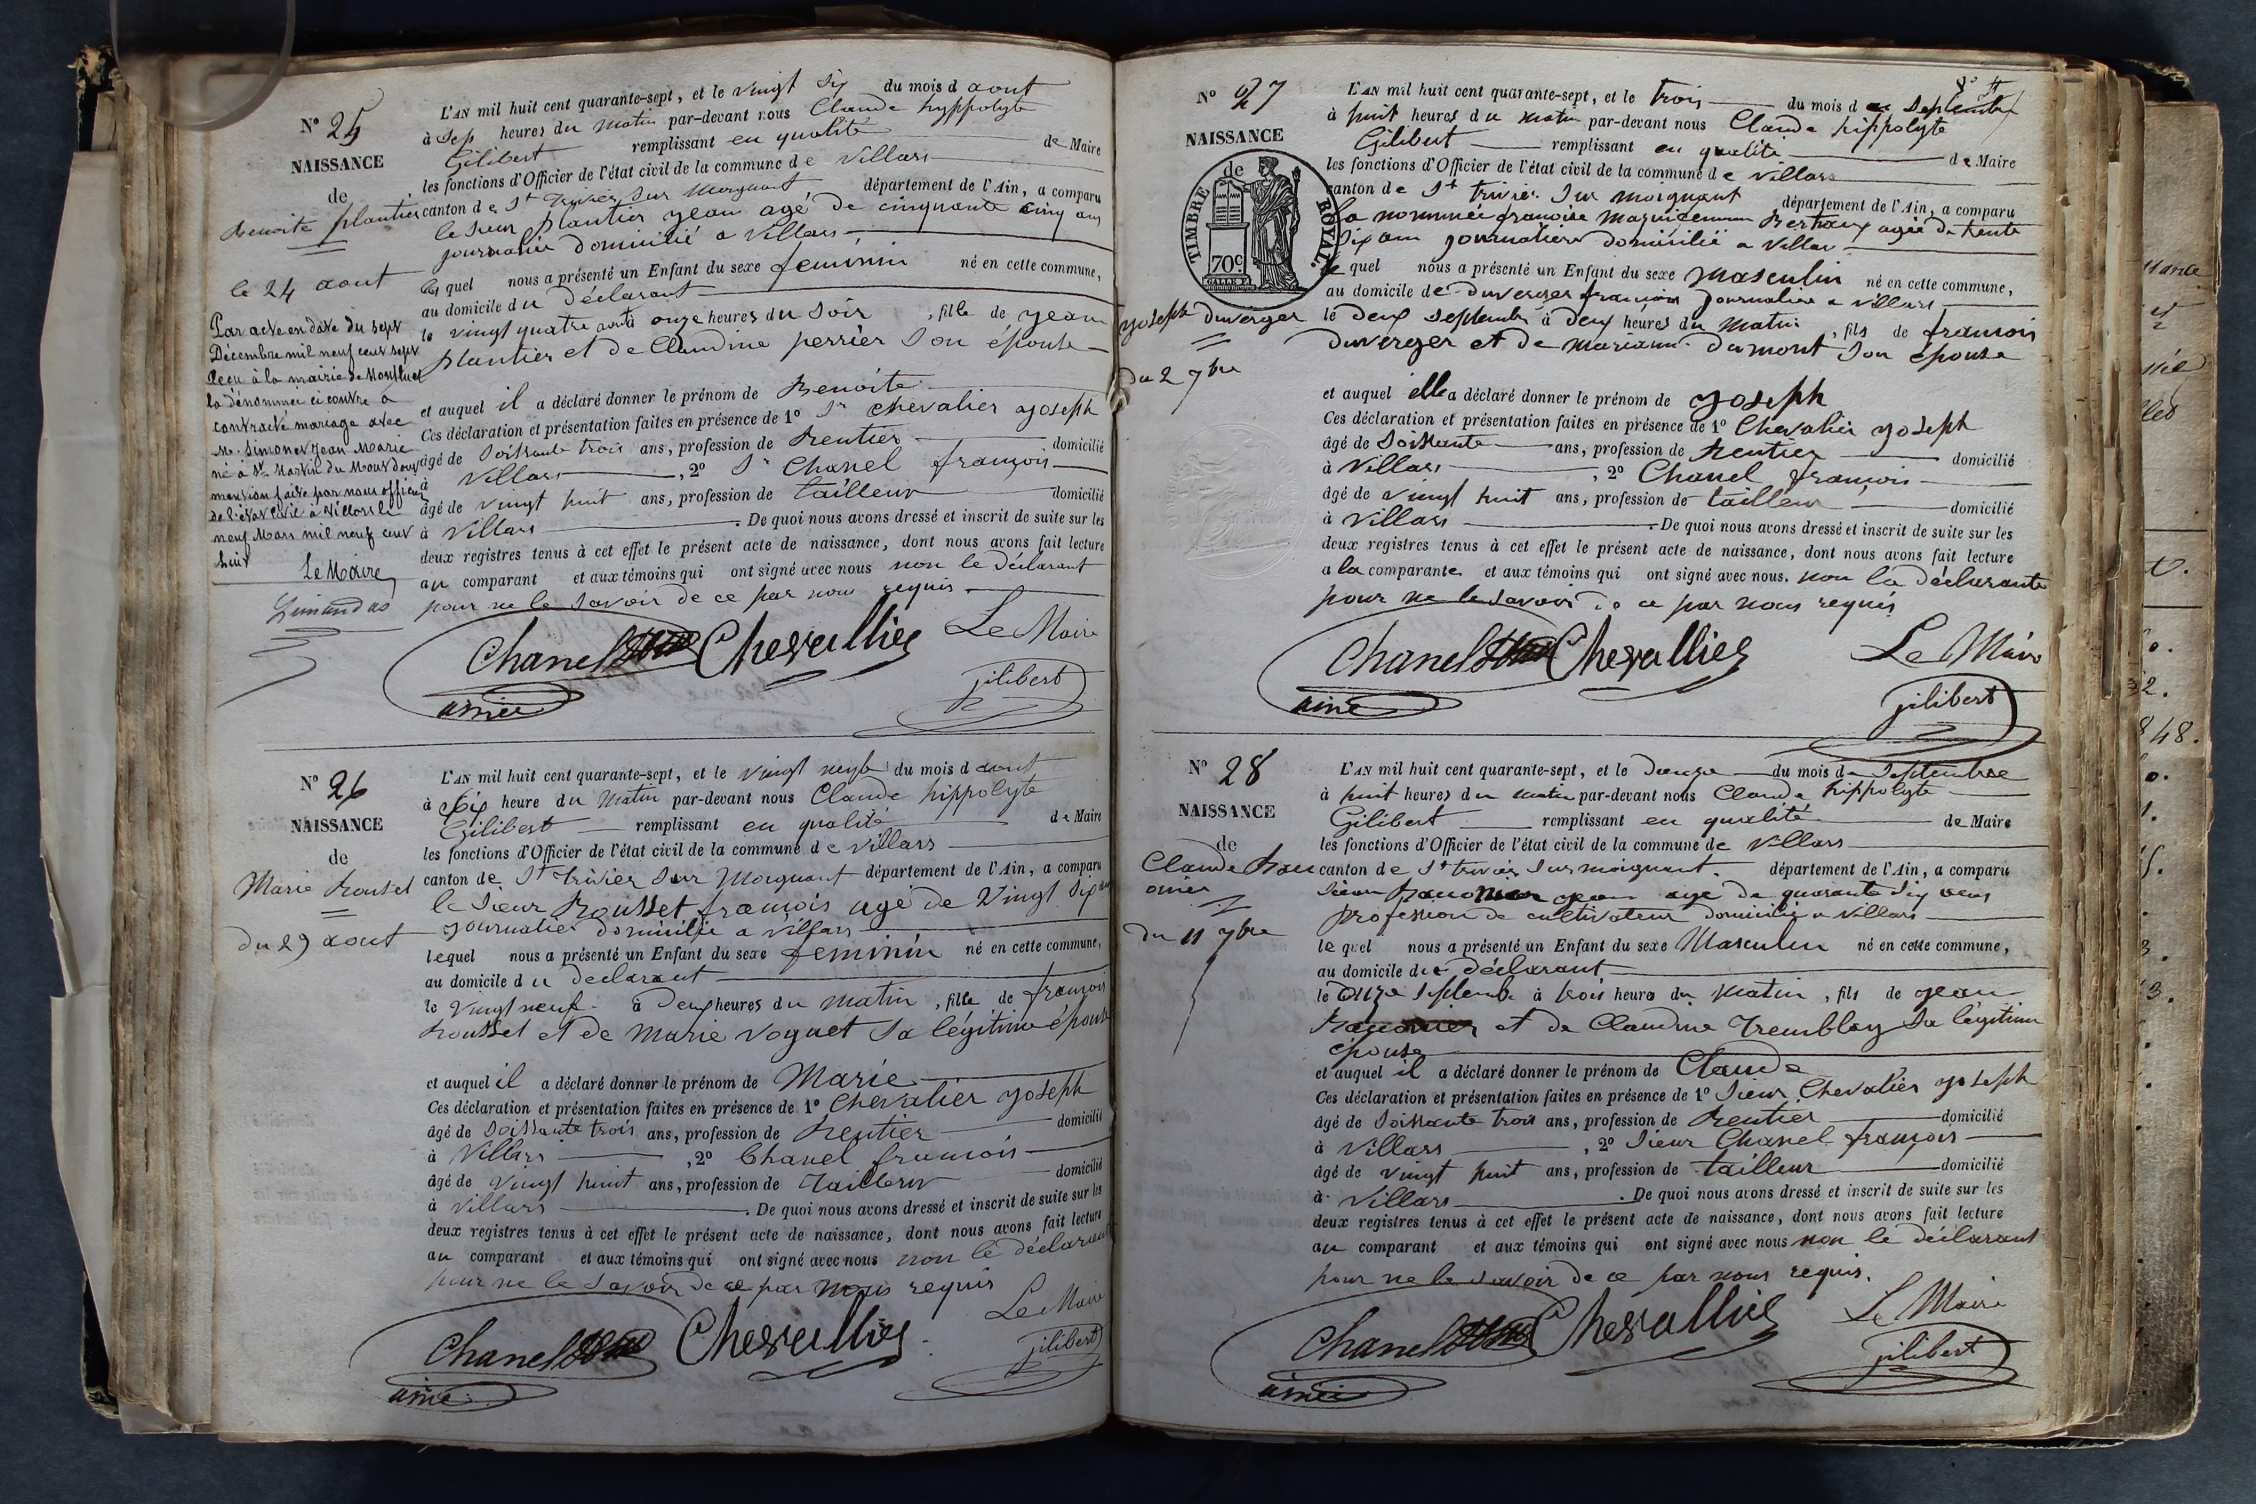 N° 25
NAISSANCE
de
Benoite plantier
le 24 aout
Par acte en date du sept
Décembre mil neuf cent sept
reçu à la mairie de Montluel
la dénommée ci contre a
contracté mariage avec
M. Simonet Jean Marie
né à St Martin du Mont dont
mention faite par nous officier
de l'état civil à Villars le
neuf Mars mil neuf cent
huit
Le Maire
L'AN mil huit cent quarante-sept, et le vingt six du mois d aout
à sep heures du matin par-devant nous Claude hyppolyte
Gilibert remplissant en qualité de Maire
les fonctions d'Officier de l'état civil de la commune de Villars
canton de St Trivier sur Moignant, département de l'Ain, a comparu
le sieur plantier jean agé de cinquante cinq ans
journalier domicilié a Villars
le quel nous a présenté un Enfant du sexe feminin né en cette commune,
au domicile du déclarant
le vingt quatre aout à onze heures du soir, fille de jean
plantier et de Claudine perrier son épouse
et auquel il a déclaré donner le prénom de Benoite
Ces déclaration et présentation faites en présence de 1° Sr chevalier joseph
âgé de soissante trois ans, profession de Rentier domicilié
à Villars, 2° Sr Chanel françois
âgé de vingt huit ans, profession de tailleur domicilié
à Villars. De quoi nous avons dressé et inscrit de suite sur les
deux registres tenus à cet effet le présent acte de naissance, dont nous avons fait lecture
au comparant et aux témoins qui ont signé avec nous non le déclarant
pour ne le savoir de ce par nous requis
Chanel Chevallier Le Maire
ainé gilibert
N° 26
NAISSANCE
de
Marie Rousset
du 29 aout
L'AN mil huit cent quarante-sept, et le vingt neuf du mois d aout
à dix heure du matin par-devant nous Claude hippolyte
Gilibert remplissant en qualité de Maire
les fonctions d'Officier de l'état civil de la commune de Villars
canton de St Trivier sur Moignant département de l'Ain, a comparu
le sieur Rousset françois agé de Vingt six ans
journalier domicilié a Villars
lequel nous a présenté un Enfant du sexe feminin né en cette commune,
au domicile du déclarant
le vingt neuf à deux heures du matin, fille de françois
Rousset et de Marie voguet sa légitime épouse
et auquel il a déclaré donner le prénom de Marie
Ces déclaration et présentation faites en présence de 1° Chevalier joseph
âgé de soissante trois ans, profession de Rentier domicilié
à Villars, 2° Chanel francois
âgé de vingt huit ans, profession de tailleur domicilié
à Villars. De quoi nous avons dressé et inscrit de suite sur les
deux registres tenus à cet effet le présent acte de naissance, dont nous avons fait lecture
au comparant et aux témoins qui ont signé avec nous non le déclarant
pour ne le savoir de ce par nous requis
Chanel Chevallier Le Maire
ainé gilibert
N° 27
NAISSANCE
de
TIMBRE ROYAL.
70c
joseph duverger
du 2 7bre
L'AN mil huit cent quarante-sept, et le trois du mois de septembre
à huit heures du matin par-devant nous Claude hippolyte
Gilibert remplissant en qualité de Maire
les fonctions d'Officier de l'état civil de la commune de Villars
canton de St trivier sur moignant département de l'Ain, a comparu
la nommée françoise Bertraux agée de trente
six ans journalière domiciliée a Villars
le quel nous a présenté un Enfant du sexe masculin né en cette commune,
au domicile de duverger françois journalier a villars
le deux septembre à deux heures du matin, fils de francois
duverger et de mariann dumont son épouse
et auquel elle a déclaré donner le prénom de joseph
Ces déclaration et présentation faites en présence de 1° Chevalier joseph
âgé de soissante ans, profession de Rentier domicilié
à Villars, 2° Chanel françois
âgé de vingt huit ans, profession de tailleur domicilié
à Villars. De quoi nous avons dressé et inscrit de suite sur les
deux registres tenus à cet effet le présent acte de naissance, dont nous avons fait lecture
a la comparante et aux témoins qui ont signé avec nous. non la déclarante
pour ne le savoir de ce par nous requis
Chanel Chevallier Le Maire
ainé gilibert
N° 28
NAISSANCE
de
Claude
du 11 7bre
L'AN mil huit cent quarante-sept, et le douze du mois de Septembre
à huit heures du matin par-devant nous Claude hippolyte
Gilibert remplissant en qualité de Maire
les fonctions d'Officier de l'état civil de la commune de Villars
canton de St trivier sur moignant. département de l'Ain, a comparu
sieur jean agé de quarante six ans
profession de cultivateur domicilié a Villars
le quel nous a présenté un Enfant du sexe Masculin né en cette commune,
au domicile du déclarant
le onze septembre à trois heure du matin, fils de jean
et de Claudine Tremblay sa légitime
épouse
et auquel il a déclaré donner le prénom de Claude
Ces déclaration et présentation faites en présence de 1° Sieur Chevalier joseph
âgé de soissante trois ans, profession de Rentier domicilié
à Villars, 2° Sieur Chanel françois
âgé de vingt huit ans, profession de tailleur domicilié
à Villars. De quoi nous avons dressé et inscrit de suite sur les
deux registres tenus à cet effet le présent acte de naissance, dont nous avons fait lecture
au comparant et aux témoins qui ont signé avec nous non le déclarant
pour ne le savoir de ce par nous requis.
Chanel Chevallier Le Maire
ainé gilibert